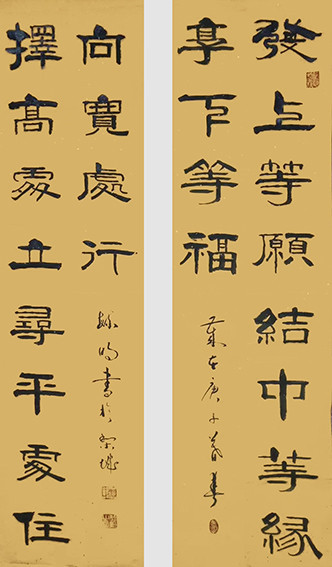 發上等願結中等緣
享下等福
歲在庚子
擇高處立尋平處住
向寬處行
書於